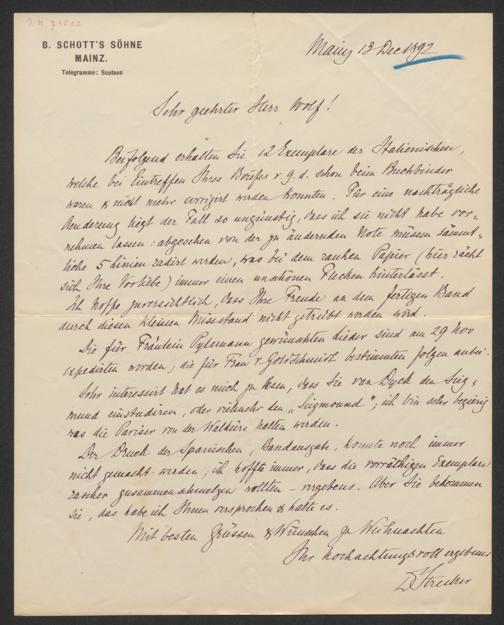 B. SCHOTT'S SÖHNE
MAINZ.
Telegramme: Scotson
Mainz 13 Dec 1892
Sehr geehrter Herr Wolf!
Beifolgend erhalten Sie 12 Exemplare der Italienischen,
welche bei Eintreffen Ihres Briefes v. 9. d. schon beim Buchbinder
waren & nicht mehr corrigirt werden konnten. Für eine nachträgliche
Aenderung liegt der Fall so ungünstig, dass ich sie nicht habe vor-
nehmen lassen: abgesehen von der zu ändernden Note müssen sämmt-
liche 5 Linien radirt werden, was bei dem rauhen Papier (hier rächt
sich Ihre Vorliebe) immer einen unschönen Flecken hinterlässt.
Ich hoffe zuversichtlich, dass Ihre Freude an dem fertigen Band
durch diesen kleinen Missstand nicht getrübt werden wird.
Die für Fräulein gewünschten Lieder sind am 29 Nov
expedirt worden; die für Frau v. Goldschmidt bestimmten folgen anbei.
Sehr interessirt hat es mich zu lesen, dass Sie van Dyck den Sieg-
mund einstudiren, oder vielmehr den „Siegmound"; ich bin sehr begierig
was die Pariser von der Walküre halten werden.
Der Druck der Spanischen, Bandausgabe, konnte noch immer
nicht gemacht werden; ich hoffte immer, dass die vorräthigen Exemplare
rascher zusammenschmelzen sollten – vergebens. Aber Sie bekommen
sie, das habe ich Ihnen versprochen & halte es.
Mit besten Grüssen & Wünschen zu Weihnachten
Ihr hochachtungsvoll ergebener
Dr Strecker